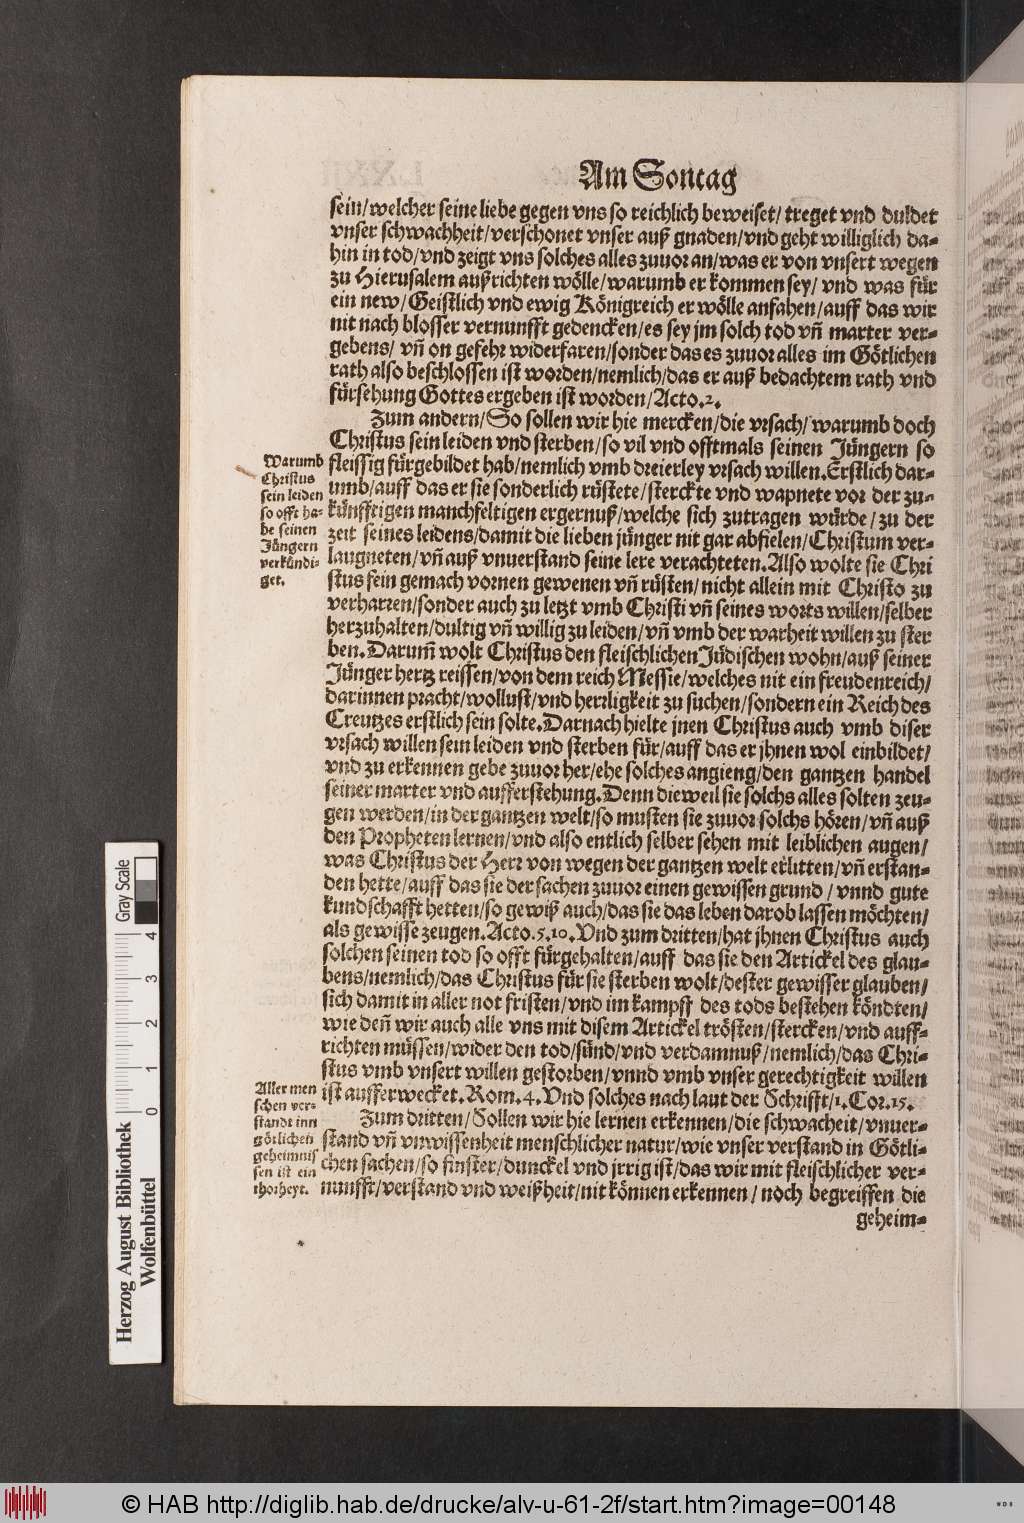 Am Sontag
sein/welcher seine liebe gegen vns so reichlich beweiset/ treget vnd duldet
vnser schwachheit/verschonet vnser auß gnaden/vnd geht williglich da=
hin in tod/vnd zeigt vns solches alles zuuor an/was er von vnsert wegen
zu Hierusalem außrichten wölle/warumb er kommen sey/ vnd was für
ein new/Geistlich vnd ewig Königreich er wölle anfahen/auff das wir
nit nach blosser vernunfft gedencken/es sey jm solch tod vñ marter ver=
gebens/ vñ on gefehr widerfaren/sonder das es zuuor alles im Götlichen
rath also beschlossen ist worden/nemlich/das er auß bedachtem rath vnd
fürsehung Gottes ergeben ist worden/Acto.2.
Zum andern/So sollen wir hie mercken/die vrsach/warumb doch
Christus sein leiden vnd sterben/so vil vnd offtmals seinen Jüngern so
fleissig fürgebildet hab/nemlich vmb dreierley vrsach willen.Erstlich dar=
umb/auff das er sie sonderlich rüstete/sterckte vnd wapnete vor der zu=
künfftigen manchfeltigen ergernuß/welche sich zutragen würde/zu der
zeit seines leidens/damit die lieben jünger nit gar abfielen/Christum ver=
laugneten/vñ auß vnuerstand seine lere verachteten.Also wolte sie Chri
stus fein gemach vornen gewenen vñ rüsten/nicht allein mit Christo zu
verharren/sonder auch zu letzt vmb Christi vñ seines worts willen/selber
herzuhalten/dultig vñ willig zu leiden/vñ vmb der warheit willen zu ster
ben.Darum̃ wolt Christus den fleischlichen Jüdischen wohn/auß seiner
Jünger hertz reissen/von dem reich Messie/welches nit ein freudenreich/
darinnen pracht/wollust/vnd herrligkeit zu suchen/sondern ein Reich des
Creutzes erstlich sein solte.Darnach hielte jnen Christus auch vmb diser
vrsach willen sein leiden vnd sterben für/auff das er jhnen wol einbildet/
vnd zu erkennen gebe zuuor her/ehe solches angieng/den gantzen handel
seiner marter vnd aufferstehung.Denn dieweil sie solchs alles solten zeu=
gen werden/in der gantzen welt/so musten sie zuuor solchs hören/vñ auß
den Propheten lernen/vnd also entlich selber sehen mit leiblichen augen/
was Christus der Herr von wegen der gantzen welt erlitten/vñ erstan=
den hette/auff das sie der sachen zuuor einen gewissen grund / vnnd gute
kundschafft hetten/so gewiß auch/das sie das leben darob lassen möchten/
als gewisse zeugen.Acto.5.10.Vnd zum dritten/hat jhnen Christus auch
solchen seinen tod so offt fürgehalten/auff das sie den Artickel des glau=
bens/nemlich/das Christus für sie sterben wolt/dester gewisser glauben/
sich damit in aller not fristen/vnd im kampff des tods bestehen köndten/
wie deñ wir auch alle vns mit disem Artickel trösten/stercken/vnd auff=
richten müssen/wider den tod/sünd/vnd verdamnuß/nemlich/das Chri=
stus vmb vnsert willen gestorben/vnnd vmb vnser gerechtigkeit willen
ist aufferwecket.Rom.4.Vnd solches nach laut der Schrifft/1.Cor.15.
Zum dritten/Sollen wir hie lernen erkennen/die schwacheit/vnuer=
stand vñ vnwissenheit menschlicher natur/wie vnser verstand in Götli=
chen sachen/so finster/dunckel vnd jrrig ist/das wir mit fleischlicher ver=
nunfft/verstand vnd weißheit/nit können erkennen / noch begreiffen die
geheim=
Warumb
Christus
sein leiden
so offt ha=
be seinen
Jüngern
verkündi=
get.
Aller men
schen ver=
standt inn
götlichen
geheimnis
sen ist ein
thorheyt.
Herzog August Bibliothek
Wolfenbüttel
Gray Scale
0 1 2 3 4
© HAB http://diglib.hab.de/drucke/alv-u-61-2f/start.htm?image=00148
WDB